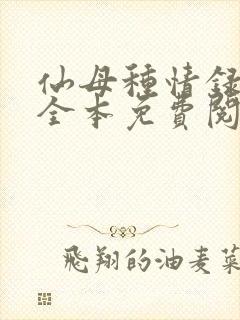 仙母種情録
全本免費閱
飛翔的油麦菜